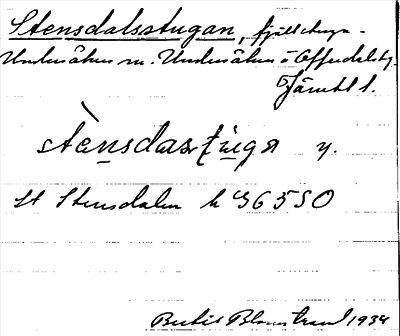 Stensdalsstugan, fjällstuga
Undersåkers sn. Undersåkers o Offerdals tg.
Jämtl l.
stènsdasstu̲ga y.
st Stensdalen h 36550
Bertil Blomstrand 1934